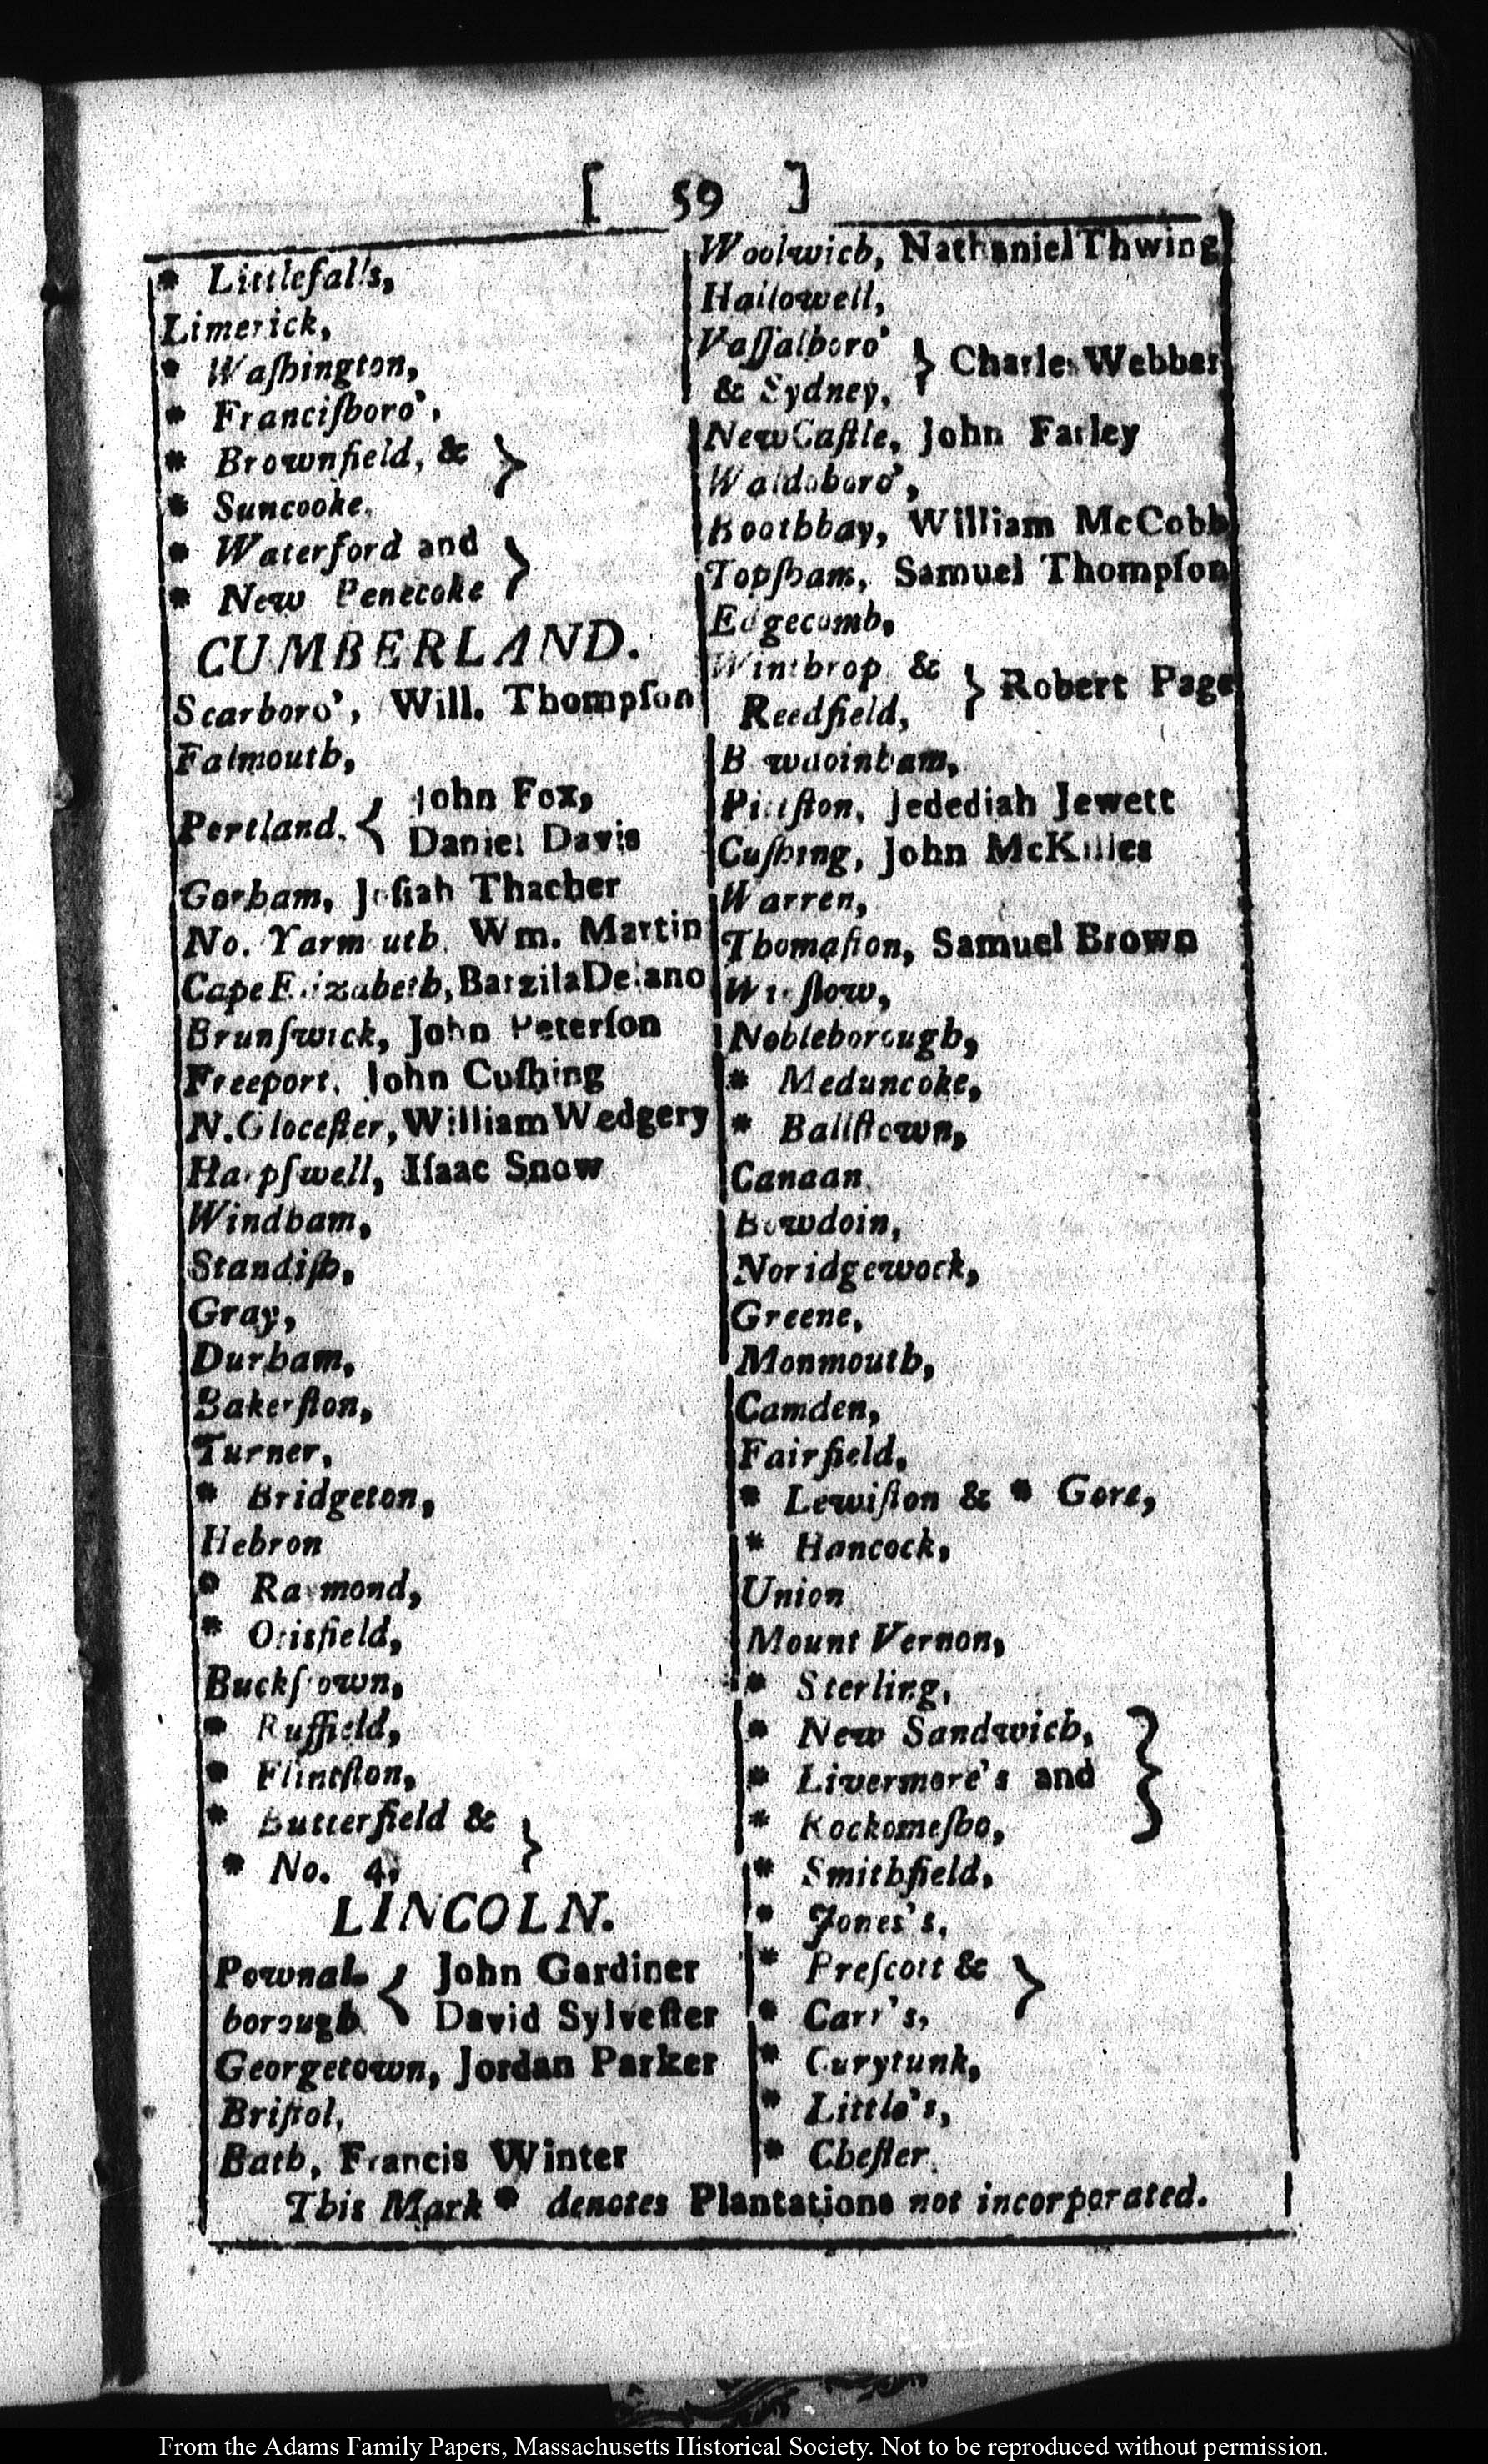 [ 59 ]
* Littlefalls,
Limerick,
* Waſhington,
* Franciſboro',
* Brownfield, & }
* Suncooke,
* Waterford and }
* New Penecoke
CUMBERLAND.
Scarboro', Will. Thompſon
Falmouth,
Portland, { John Fox,
Daniel Davis
Gorham, Joſiah Thacher
No. Yarmouth, Wm. Martin
Cape Elizabeth, Barzila Delano
Brunſwick, John Peterſon
Freeport, John Cuſhing
N. Gloceſter, William Wedgery
Harpſwell, Iſaac Snow
Windham,
Standiſh,
Gray,
Durham,
Bakerſton,
Turner,
* Bridgeton,
Hebron
* Raymond,
* Otisfield,
Buckſtown,
* Ruffield,
* Flintſton,
* Butterfield & }
* No. 4,
LINCOLN.
Pownal- { John Gardiner
borough David Sylveſter
Georgetown, Jordan Parker
Briſtol,
Bath, Francis Winter
Woolwich, Nathaniel Thwing
Hallowell,
Vaſſalboro' } Charles Webber
& Sydney,
New Caſtle, John Farley
Waldoboro',
Boothbay, William McCobb
Topſham, Samuel Thompſon
Edgecomb,
Winthrop & } Robert Page
Reedfield,
Bowdoinham,
Pittſton, Jedediah Jewett
Cuſhing, John
Warren,
Thomaſton, Samuel Brown
Winſlow,
Nobleborough,
* Meduncoke,
* Ballſtown,
Canaan
Bowdoin,
Noridgewock,
Greene,
Monmouth,
Camden,
Fairfield,
* Lewiſton & * Gore,
* Hancock,
Union
Mount Vernon,
* Sterling,
* New Sandwich, }
* Livermore's and
* Rockomeſho,
* Smithfield,
* Jones's,
* Preſcott & }
* Carr's,
* Carytunk,
* Little's,
* Cheſter.
This Mark * denotes Plantations not incorporated.
From the Adams Family Papers, Massachusetts Historical Society. Not to be reproduced without permission.